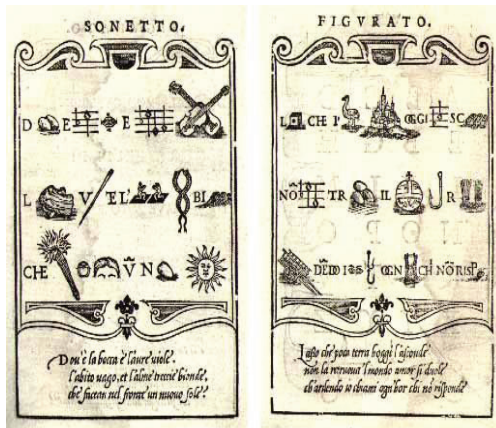 SONETTO.
D E E
L V EL' BI
CHE V̄N
Dou'è la bocca è l'aure viole?
l'abito vago, et l'alme treccie bionde,
che faccan nel fronte un nuouo sole?
FIGVRATO.
L CHE P OGGI SC
NÕ TR IL R
DĒDO I OGN CHI NÕ RISP
Lasso che poca terra hoggi l'asconde
non la retroua l'mondo amor si duole
ch'ardendo io chiami ogn'hor chi nõ risponde